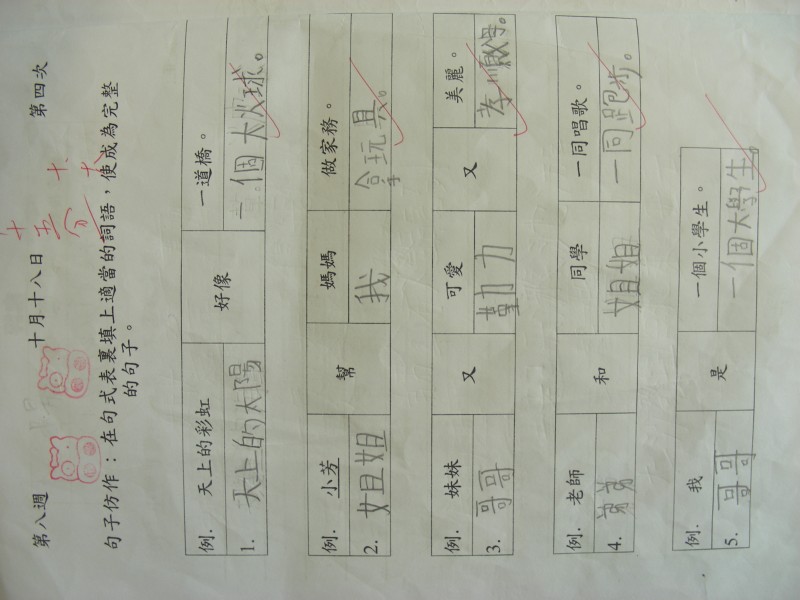 第八週 十月十八日 第四次
句子仿作：在句式表裏填上適當的詞語，使成為完整
的句子。
例. 天上的彩虹 好像 一道橋。
1. 天上的太陽 一個大火球。
例. 小芳 幫 媽媽 做家務。
2. 姐姐 我 拿玩具。
例. 妹妹 又 可愛 又 美麗。
3. 哥哥 勤力 孝順父母。
例. 老師 和 同學 一同唱歌。
4. 姐姐 一同跑步。
例. 我 是 一個小學生。
5. 哥哥 一個大學生。